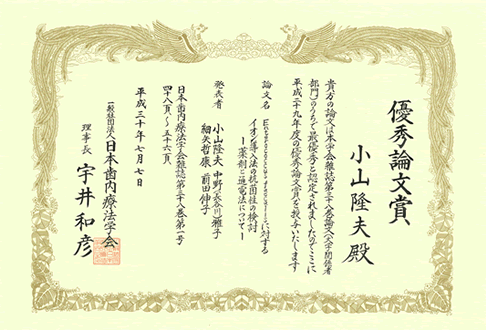 優秀論文賞
小山隆夫殿
貴方の論文は本学会雑誌第三十八巻論文(大学関係者
部門)のうちで最優秀と認定されましたのでここに
平成二十九年度の優秀論文賞を授与いたします
論文名
に対する
イオン導入法の抗菌性の検討
ー薬剤と通電法についてー
発表者
小山隆夫 中野 長谷川雅子
細矢哲康 前田伸子
日本歯内療法学会雑誌第三十八巻第一号
四十八頁〜五十六頁
平成三十年七月七日
一般社団法人日本歯内療法学会
理事長 宇井和彦